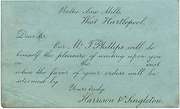 Baltic Saw Mills,
West Hartlepool,
Dear Sir
Our Mr. J. Phillips will do
himself the pleasure of waiting upon you
on next
when the favor of your orders will be
esteemed by
Yours truly
Harrison & Singleton